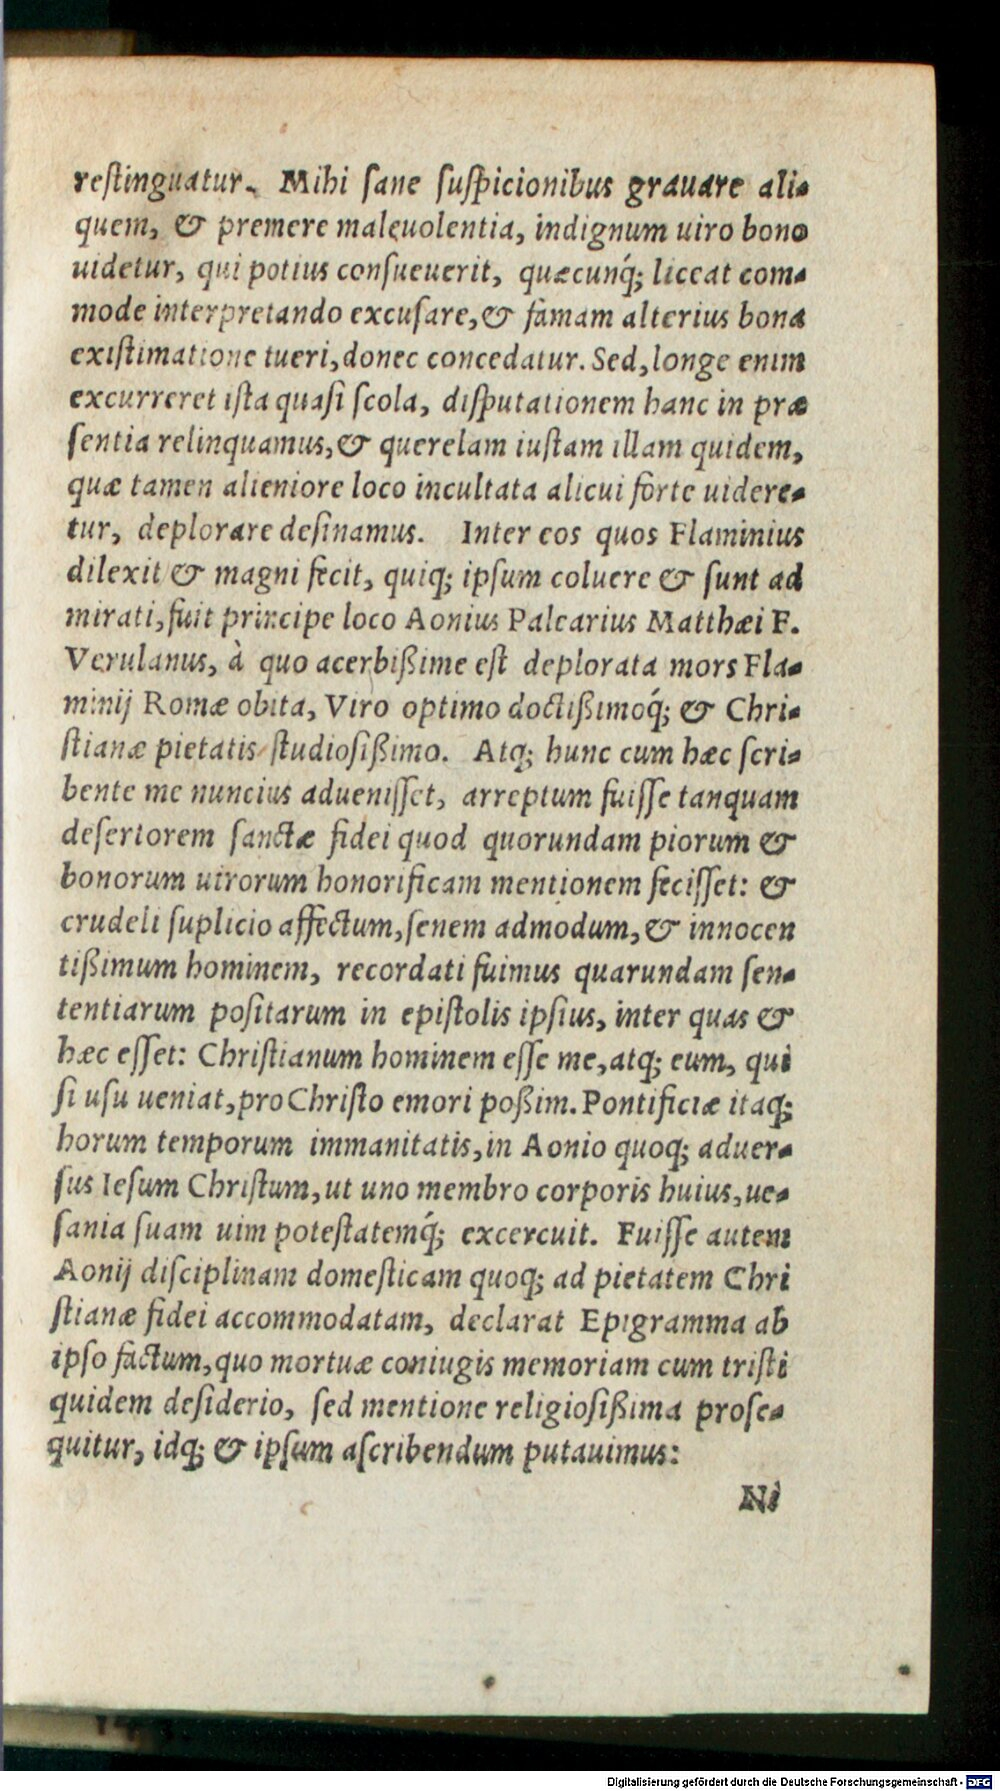 restinguatur. Mihi sane suspicionibus grauare ali-
quem, & premere maleuolentia, indignum uiro bono
uidetur, qui potius consueuerit, quæcunq́; liceat com-
mode interpretando excusare, & famam alterius bona
existimatione tueri, donec concedatur. Sed, longe enim
excurreret ista quasi scola, disputationem hanc in præ
sentia relinquamus, & querelam iustam illam quidem,
quæ tamen alieniore loco incultata alicui forte uidere-
tur, deplorare desinamus. Inter eos quos Flaminius
dilexit & magni fecit, quiq; ipsum coluere & sunt ad
mirati, fuit principe loco Aonius Palearius Matthæi F.
Verulanus, à quo acerbißime est deplorata mors Fla-
minij Romæ obita, Viro optimo doctißimoq́; & Chri-
stianæ pietatis studiosißimo. Atq; hunc cum hæc scri-
bente me nuncius aduenisset, arreptum fuisse tanquam
desertorem sanctæ fidei quod quorundam piorum &
bonorum uirorum honorificam mentionem fecisset: &
crudeli suplicio affectum, senem admodum, & innocen
tißimum hominem, recordati fuimus quarundam sen-
tentiarum positarum in epistolis ipsius, inter quas &
hæc esset: Christianum hominem esse me, atq; eum, qui
si usu ueniat, pro Christo emori poßim. Pontificiæ itaq;
horum temporum immanitatis, in Aonio quoq; aduer-
sus Iesum Christum, ut uno membro corporis huius, ue-
sania suam uim potestatemq́; excercuit. Fuisse autem
Aonij disciplinam domesticam quoq; ad pietatem Chri
stianæ fidei accommodatam, declarat Epigramma ab
ipso factum, quo mortuæ coniugis memoriam cum tristi
quidem desiderio, sed mentione religiosißima prose-
quitur, idq; & ipsum ascribendum putauimus:
Ni
Digitalisierung gefördert durch die Deutsche Forschungsgemeinschaft - DFG